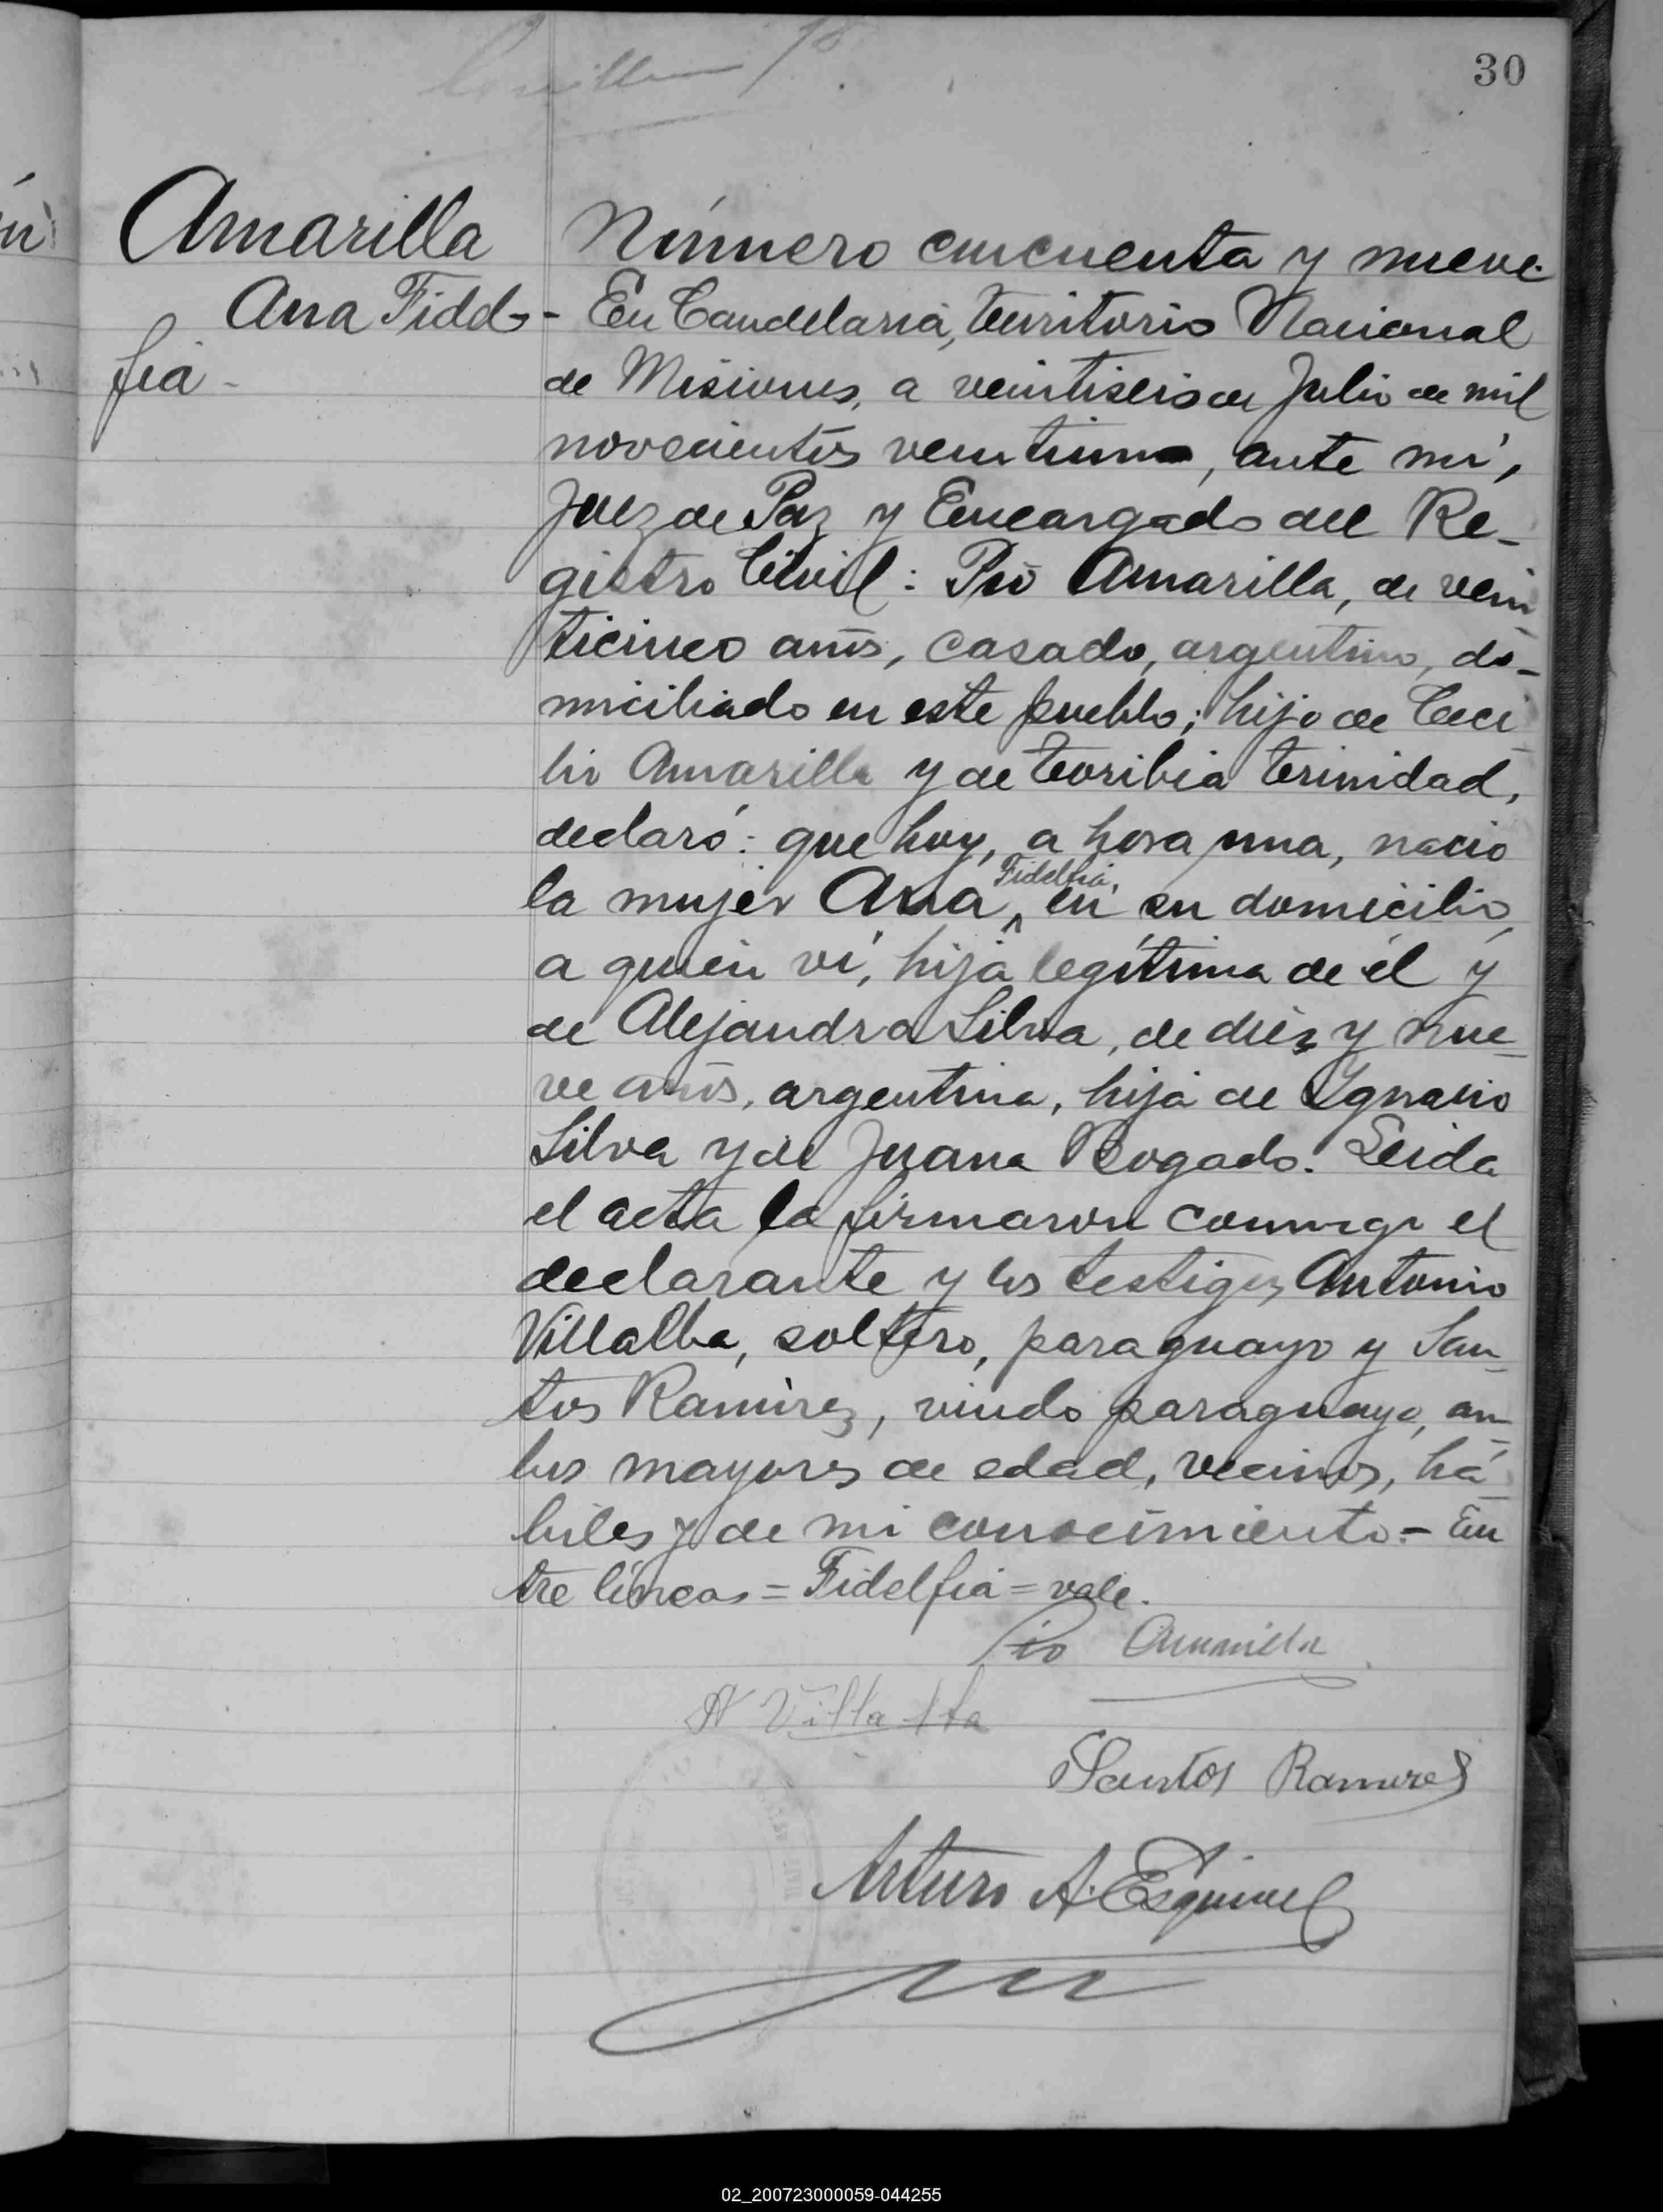 30
Amarilla
Ana Fidel-
fia-
Número cincuenta y nueve.
En Candelaria, territorio Nacional
de Misiones, a veintiseis de Julio de mil
novecientos veintiuno, ante mí,
Juez de Paz y Encargado del Re-
gistro Civil: Pio Amarilla, de vein
ticinco años, casado, argentino, do-
miciliado en este pueblo; hijo de Ceci
lio Amarilla y de teoribia terinidad,
declaró: que hoy, a hora una, nacio
la mujer Ana, Fidelfia, en su domicilio,
a quien ví, hija legítima de él y
de Alejandra Silva, de diez y nue-
ve años, argentina, hija de Ygnacio
Silva y de Juana Rogado. Leida
el acta la firmaron conmigo el
declarante y los testigos Antonio
Villalba, soltero, paraguayo y San-
tos Ramirez, viudo paraguayo, am-
bos mayores de edad, vecinos, há
biles y de mi conocimiento.- En
tre líneas = Fidelfia = vale.
Pio Amarilla
A Villalba
Santos Ramires
Arturo A. Esquivel
02_200723000059-044255